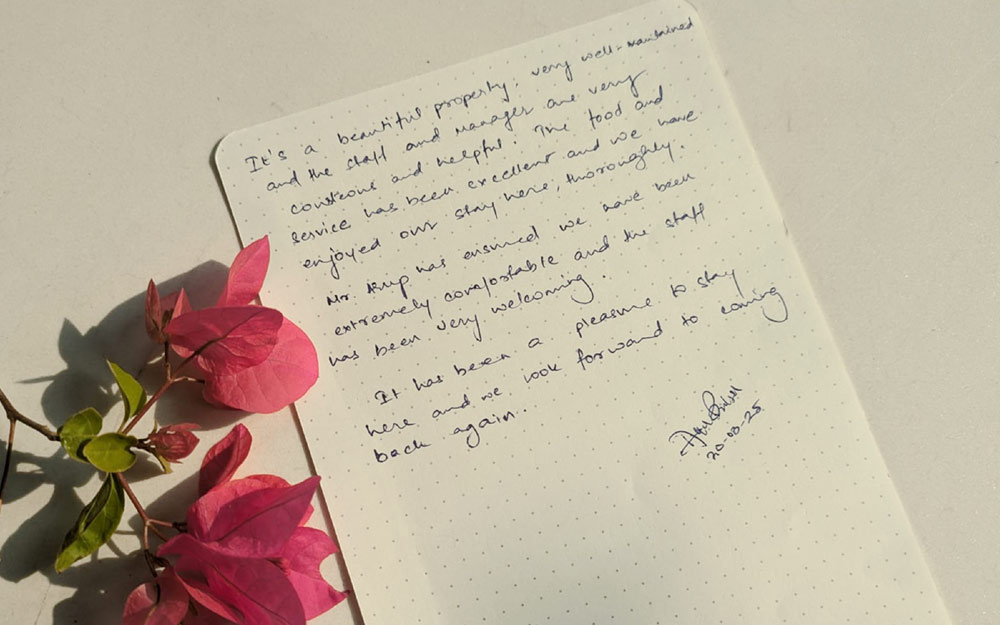 It's a beautiful property, very well-maintained
and the staff and manager are very
courteous and helpful. The food and
service has been excellent and we have
enjoyed our stay here, thoroughly.
Mr. has ensured we have been
extremely comfortable and the staff
has been very welcoming.
It has been a pleasure to stay
here and we look forward to coming
back again.
20-03-25